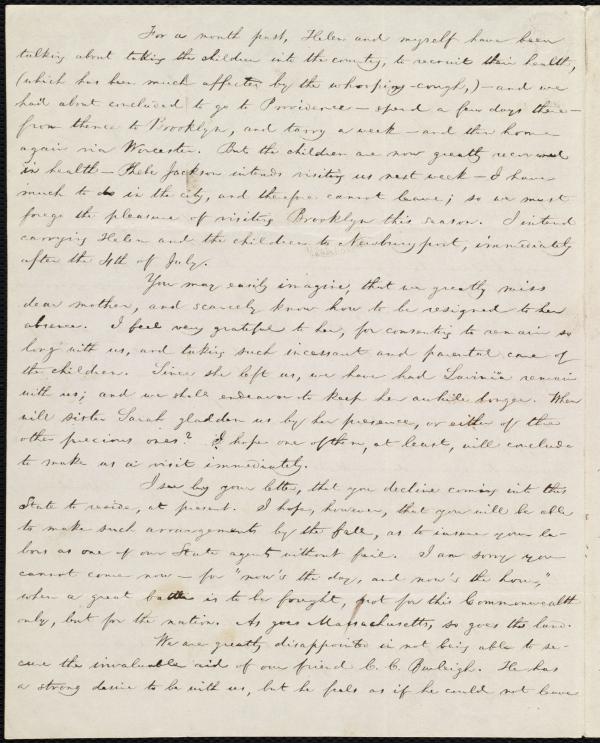 For a month past, Helen and myself have been
talking about taking the children into the country, to recruit their health,
(which has been much affected by the whooping-cough,) – and we
had about concluded to go to Providence – spend a few days there –
from thence to Brooklyn, and tarry a week – and then home
again via Worcester. But the children are now greatly recovered
in health – Phebe Jackson intends visiting us next week – I have
much to do in the city, and therefore cannot leave; so we must
forego the pleasure of visiting Brooklyn this season. I intend
carrying Helen and the children to Newburyport, immediately
after the 4th of July.
You may easily imagine, that we greatly miss
dear mother, and scarcely know how to be resigned to her
absence. I feel very grateful to her, for consenting to remain so
long with us, and taking such incessant and parental care of
the children. Since she left us, we have had Lavinia remain
with us; and we shall endeavor to keep her awhile longer. When
will sister Sarah gladden us by her presence, or either of the
other precious ones? I hope one of them, at least, will conclude
to make us a visit immediately.
I see by your letter, that you decline coming into this
State to reside, at present. I hope, however, that you will be able
to make such arrangements by the fall, as to insure your la-
bors as one of our State agents without fail. I am sorry you
cannot come now – for "now's the day, and now's the hour,"
when a great battle is to be fought, not for this Commonwealth
only, but for the nation. As goes Massachusetts, so goes the land.
We are greatly disappointed in not being able to se-
cure the invaluable aid of our friend C. C. Burleigh. He has
a strong desire to be with us, but he feels as if he could not leave